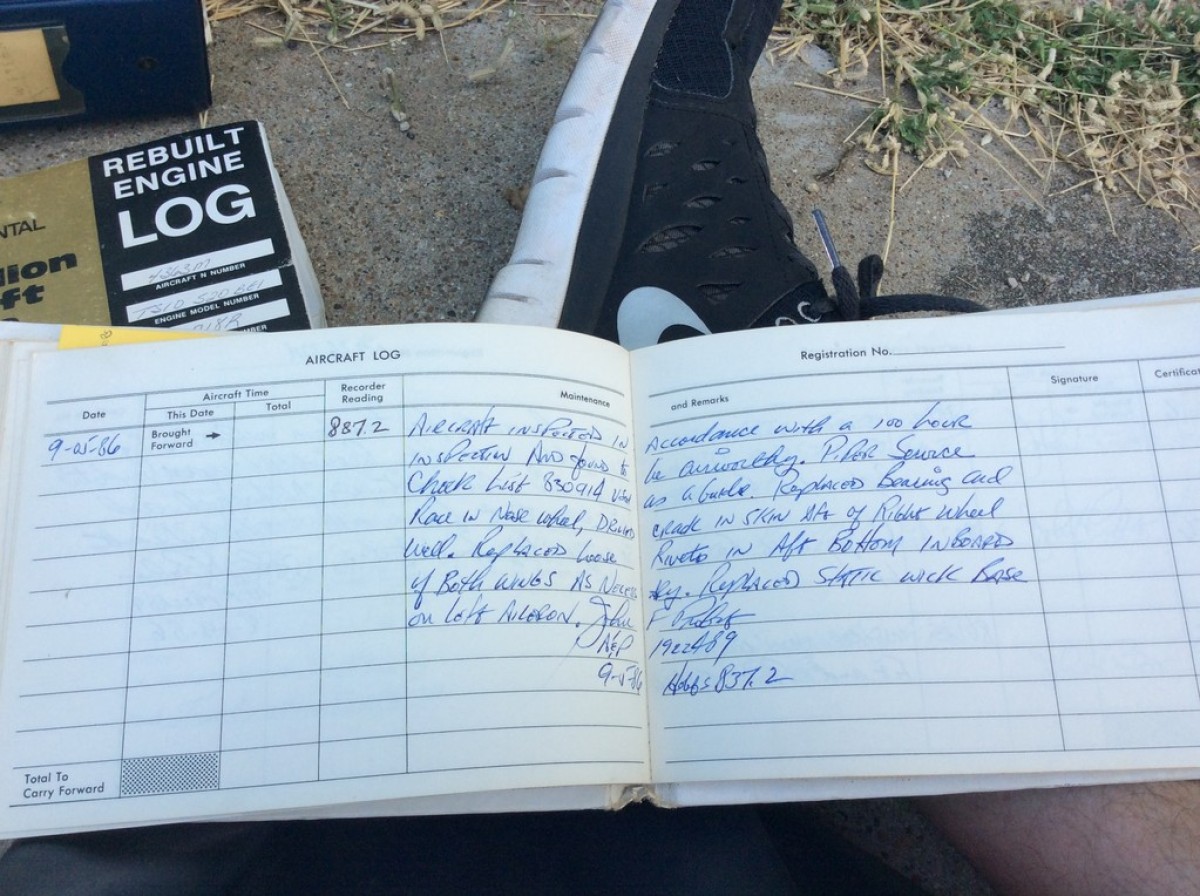 REBUILT
ENGINE
LOG
NTAL
lion
ft
AIRCRAFT N NUMBER
TSIO 520 BE1
ENGINE MODEL NUMBER
218R
NUMBER
AIRCRAFT LOG
Registration No.
Date
Aircraft Time
This Date
Total
Recorder
Reading
Maintenance
and Remarks
Signature
Certificat
9-05-86
Brought
Forward
887.2
AIRCRAFT INSPECTED IN Accordance with a 100 hour
INSPECTION AND found to be airworthy. PIPER Service
Check List 830914 used as a Guide. Replaced Bearing and
Race in Nose wheel, DRILLED crack IN SKIN Aft of Right Wheel
Well. Replaced loose Rivets IN Aft Bottom INBOARD
of Both WINGS AS Replaced STATIC WICK Base
on Left AILERON. John F
A&P
9-5-86 Hobbs 837.2
Total To
Carry Forward